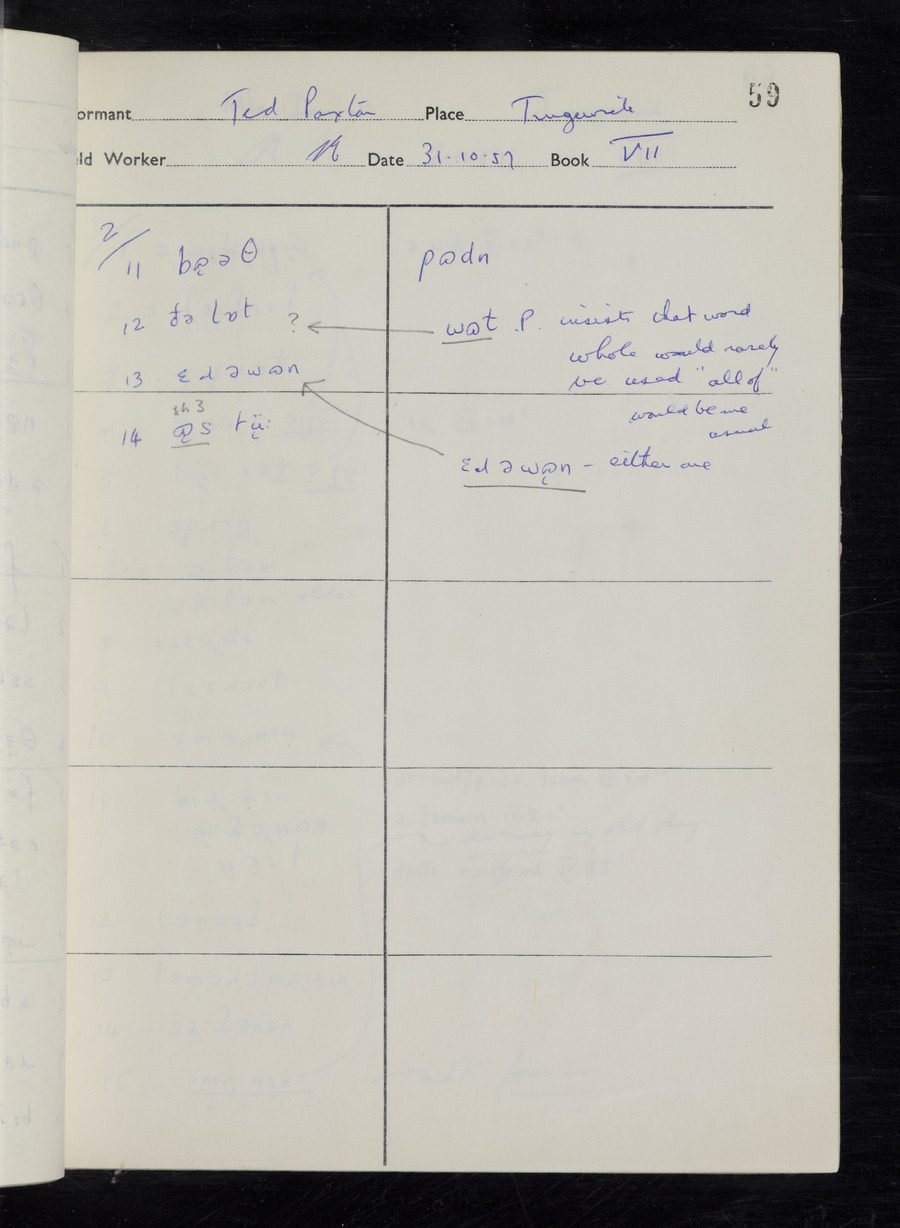 59
ormant Ted Paxton Place Tingewick
ld Worker Date 31.10.57 Book VII
2/
11 bɷ̜əθ
pɷdn
12 lɒt ?
wɷt P. insists that word
whole would rarely
be used "all of"
would be me
usual
13 ɛd əwɷn
sh 3
14 ɷ̜s
ɛd əwɷ̜n - either one